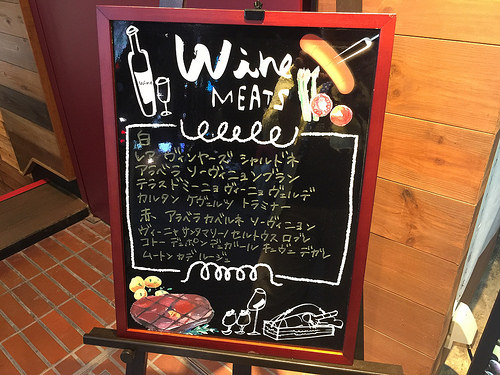 Wine
MEATS
Wine
白
レア ヴィンヤーズ シャルドネ
アラベラ ソーヴィニョンブラン
テラスドミーニョ ヴィーニョ ヴェルデ
カルタン ゲヴェルツ トラミナー
赤 アラベラ カベルネ ソーヴィニョン
ヴィーニャ サンタマリーノ セルトウス ロブレ
コトー デュポン デュガール キュヴェ デガレ
ムートン カデ ルージュ